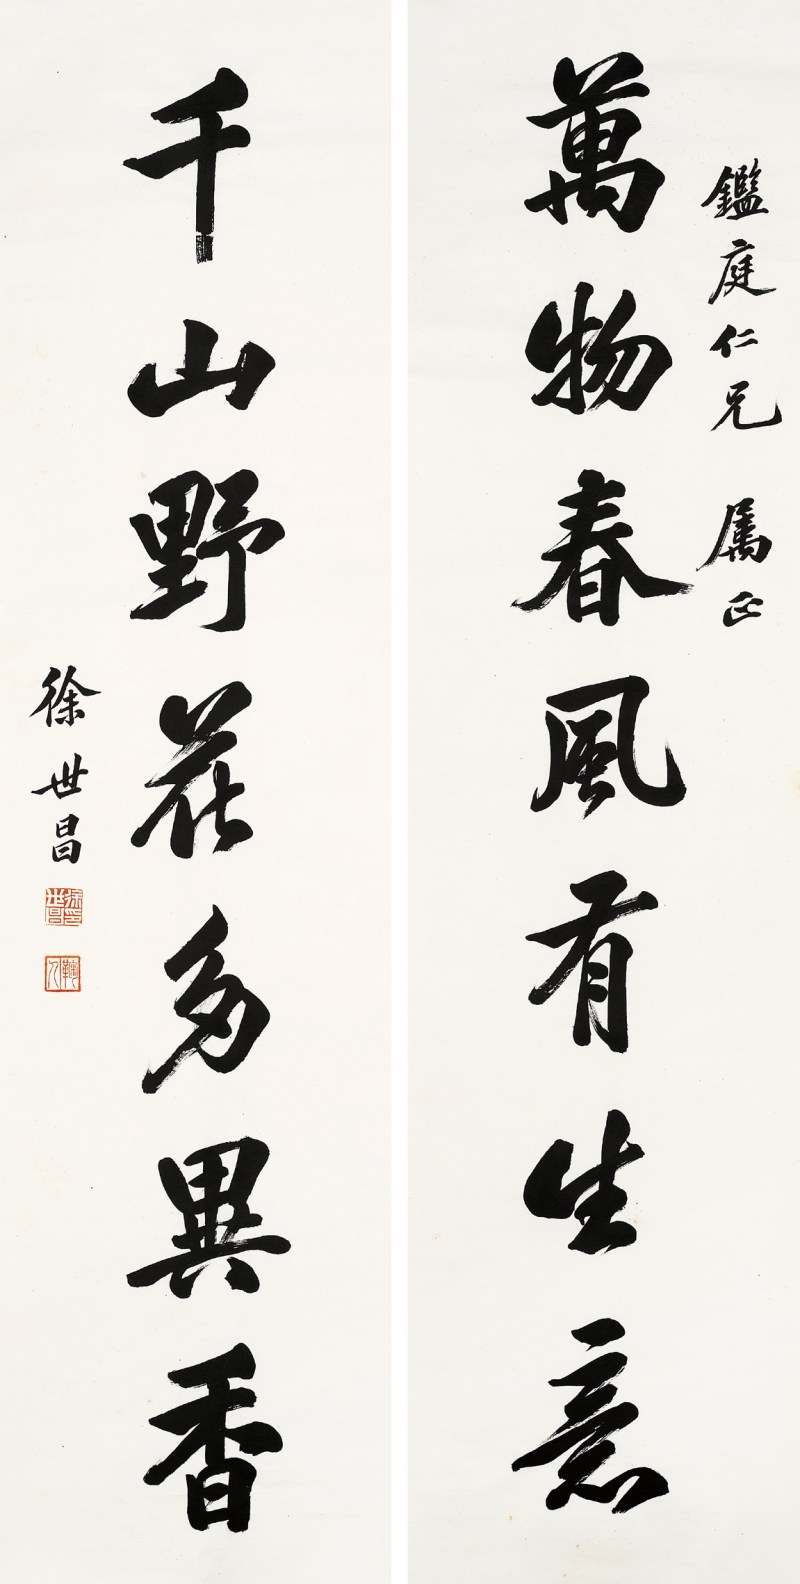 鑑庭仁兄 属正
萬物春風有生意
千山野花多異香
徐世昌
徐世昌印
鞠人